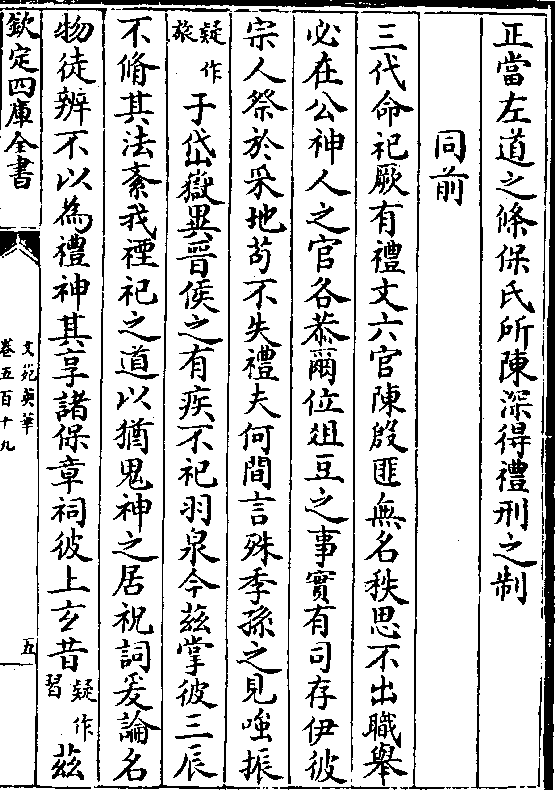 正當左道之條保氏所陳深得禮刑之制
同前
三代命祀厥有禮文六官陳殷匪無名秩思不出職舉
必在公神人之官各恭爾位俎豆之事實有司存伊彼
宗人祭於采地茍不失禮夫何間言殊季孫之見嗤振
疑作旅于岱嶽異晉侯之有疾不祀羽泉今茲掌彼三辰
不脩其法紊我禋祀之道以猶鬼神之居祝詞爰論名
物徒辨不以為禮神其享諸保章祠彼上玄昔疑作習茲
欽定四庫全書
文苑英華
卷五百十九
五